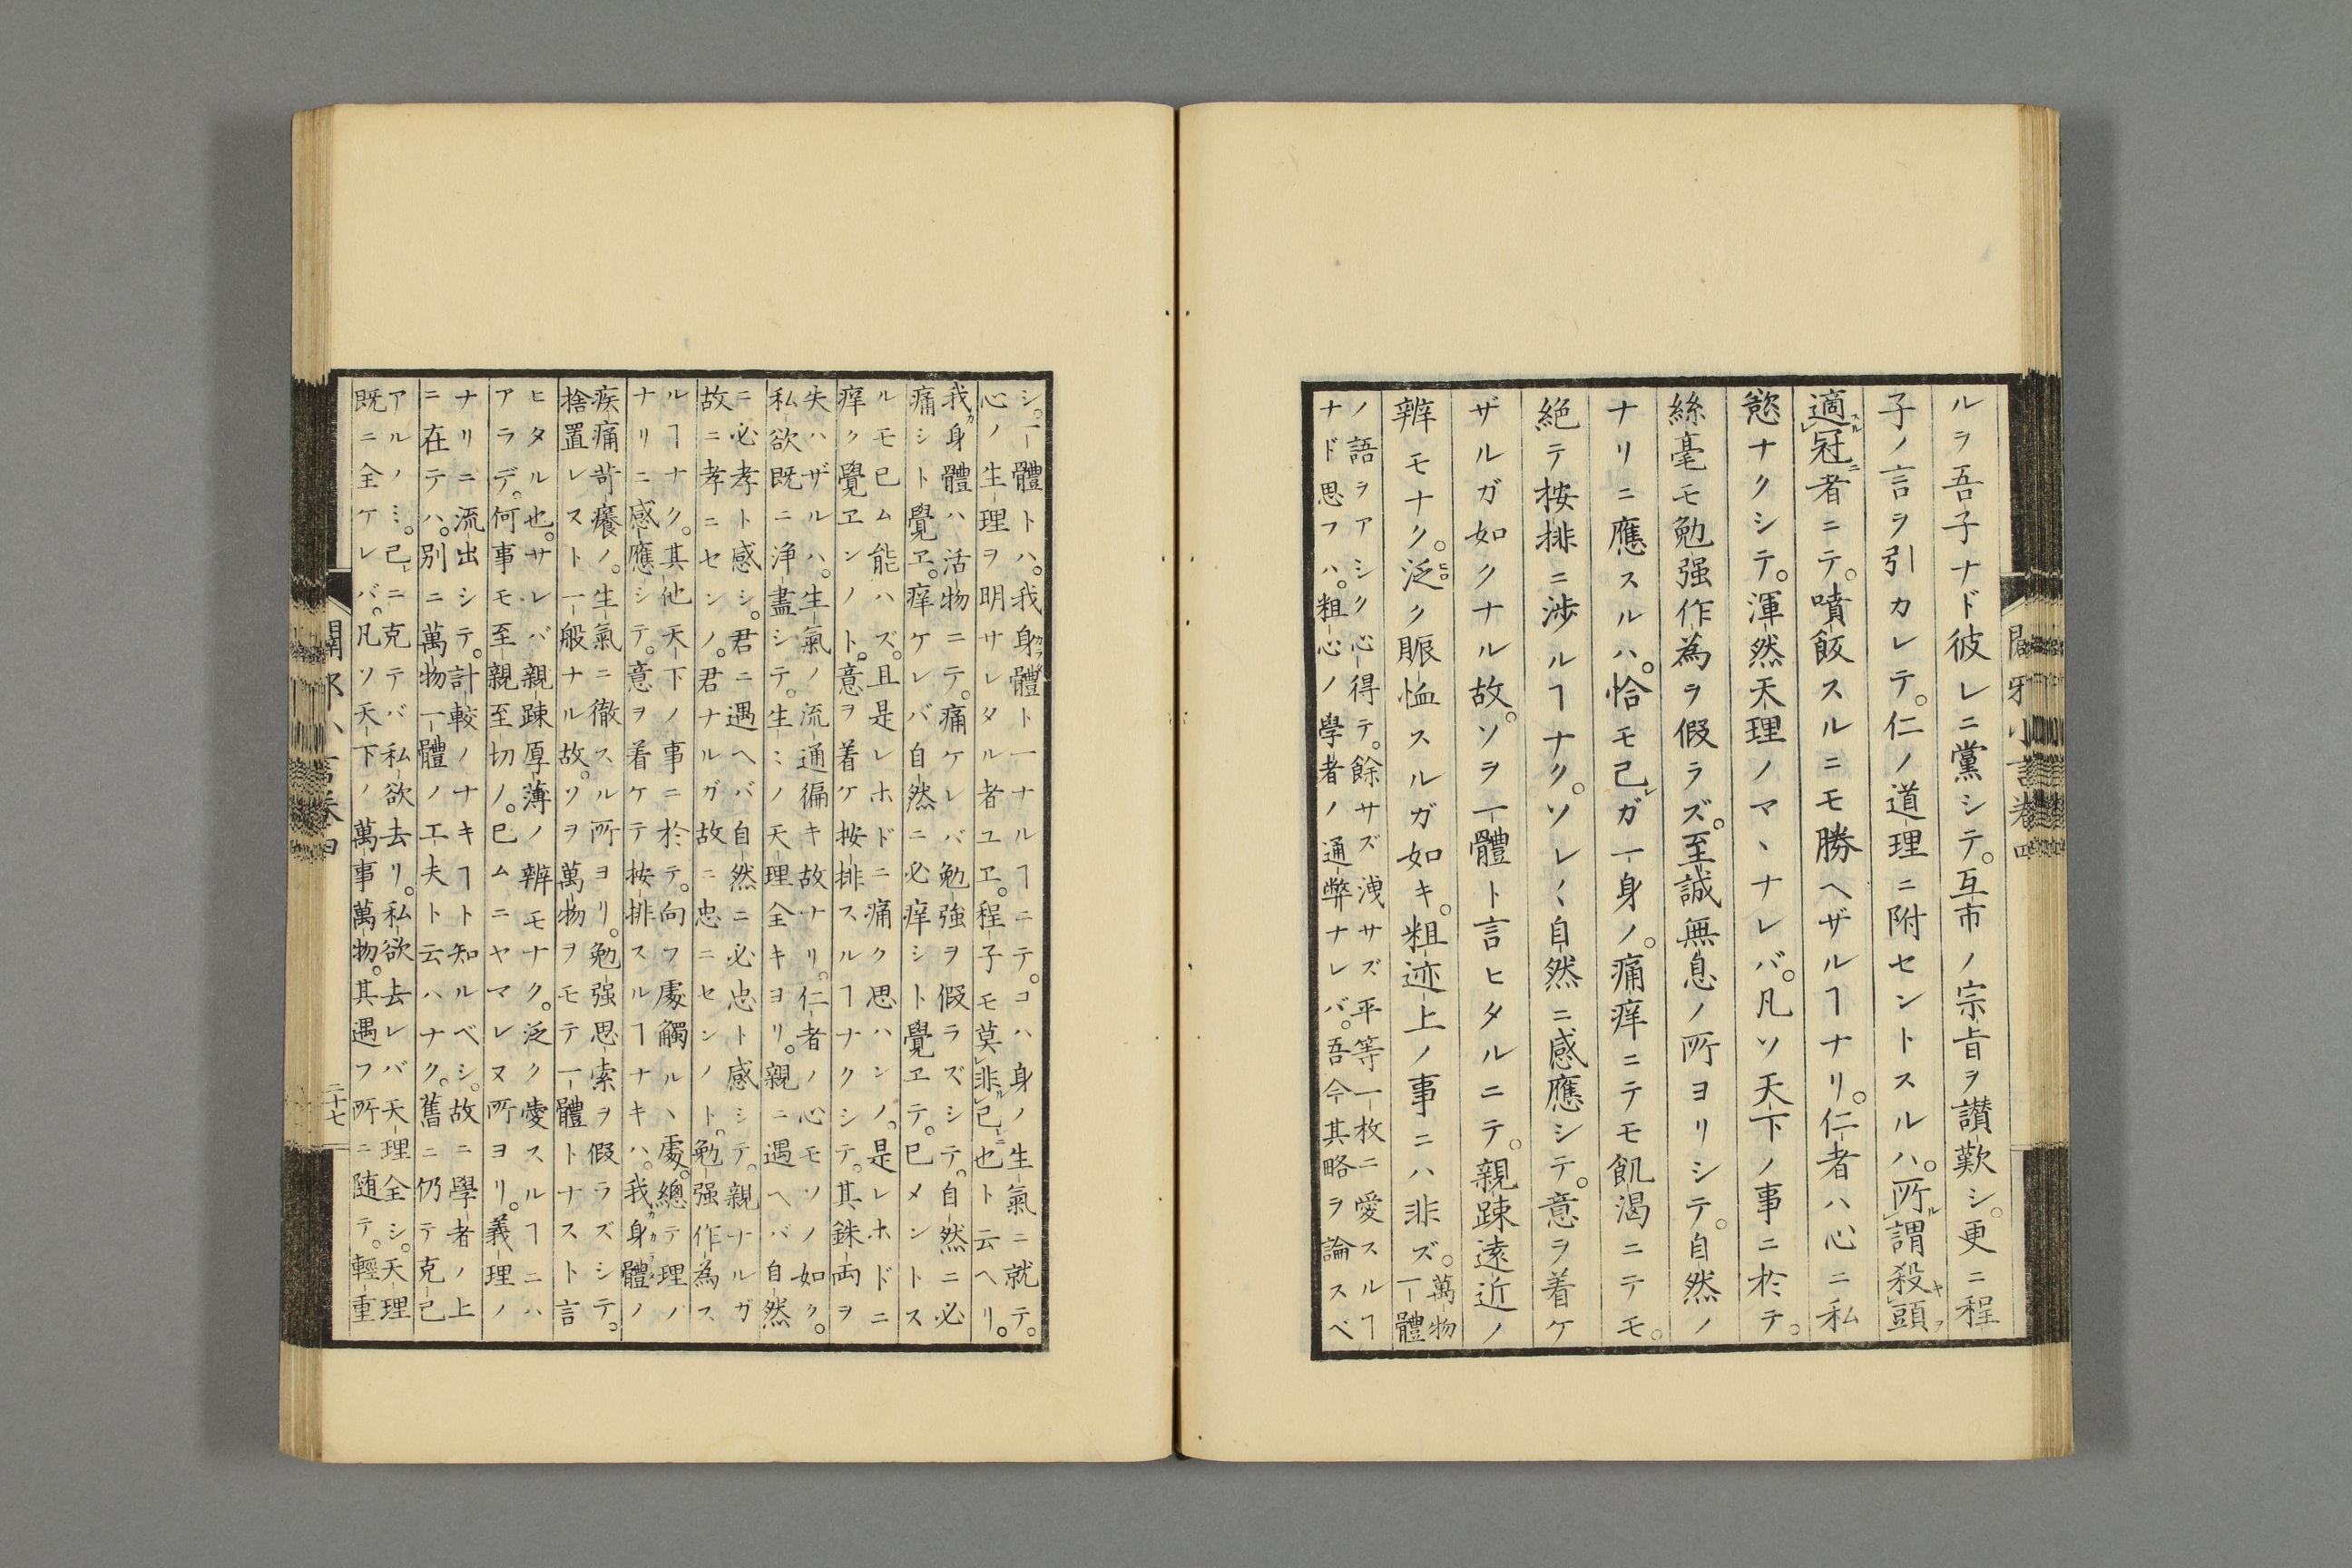 ルヲ吾子ナド彼レニ黨シテ。互市ノ宗旨ヲ讃歎シ。更ニ程
子ノ言ヲ引カレテ。仁ノ道理ニ附セントスルハ。所謂殺頭
適冠者ニテ。噴飯スルニモ勝ヘザルヿナリ。仁者ハ心ニ私
慾ナクシテ。渾然天理ノマヽナレバ。凡ソ天下ノ事ニ於テ。
絲毫モ勉强作為ヲ假ラズ。至誠無息ノ所ヨリシテ。自然ノ
ナリニ應スルハ。恰モ己ガ一身ノ。痛痒ニテモ飢渇ニテモ。
絶テ按排ニ渉ルヿナク。ソレ〱自然ニ感應シテ。意ヲ着ケ
ザルガ如クナル故。ソヲ一體ト言ヒタルニテ。親踈遠近ノ
辨モナク。泛ク賑恤スルガ如キ。粗迹上ノ事ニハ非ズ。萬物一體
ノ語ヲアシク心得テ。餘サズ洩サズ平等一枚ニ愛スルヿ
ナド思フハ。粗心ノ學者ノ通弊ナレバ。吾今其略ヲ論スベ
シ。一體トハ。我身體ト一ナルヿニテ。コハ身ノ生氣ニ就テ。
心ノ生理ヲ明サレタル者ユヱ。程子モ莫非己也ト云ヘリ。
我身體ハ活物ニテ。痛ケレバ勉強ヲ假ラズシテ。自然ニ必
痛シト覺ヱ。痒ケレバ自然ニ必痒シト覺ヱテ。已メントス
ルモ已ム能ハズ。且是レホドニ痛ク思ハンノ。是レホドニ
痒ク覺ヱンノト。意ヲ着ケ按排スルヿナクシテ。其銖兩ヲ
失ハザルハ。生氣ノ流通徧キ故ナリ。仁者ノ心モソノ如ク。
私欲既ニ淨盡シテ。生〻ノ天理全キヨリ。親ニ遇ヘバ自然
ニ必孝ト感シ。君ニ遇ヘバ自然ニ必忠ト感シテ。親ナルガ
故ニ孝ニセンノ。君ナルガ故ニ忠ニセンノト。勉强作為ス
ルヿナク。其他天下ノ事ニ於テ。向フ處觸ルヽ處。總テ理ノ
ナリニ感應シテ。意ヲ着ケテ按排スルヿナキハ。我身體ノ
疾痛苛癢ノ。生氣ニ徹スル所ヨリ。勉强思索ヲ假ラズシテ。
捨置レスト一般ナル故。ソヲ萬物ヲモテ一體トナスト言
ヒタル也。サレバ親踈厚薄ノ辨モナク。泛ク愛スルヿニハ
アラデ。何事モ至親至切ノ。已ムニヤマレヌ所ヨリ。義理ノ
ナリニ流出シテ。計較ノナキヿト知ルベシ。故ニ學者ノ上
ニ在テハ。別ニ萬物一體ノ工夫ト云ハナク。舊ニ仍テ克己
アルノミ。己ニ克テバ私欲去リ。私欲去レバ天理全シ。天理
既ニ全ケレバ。凡ソ天下ノ萬事萬物。其遇フ所ニ随テ。輕重
二十七